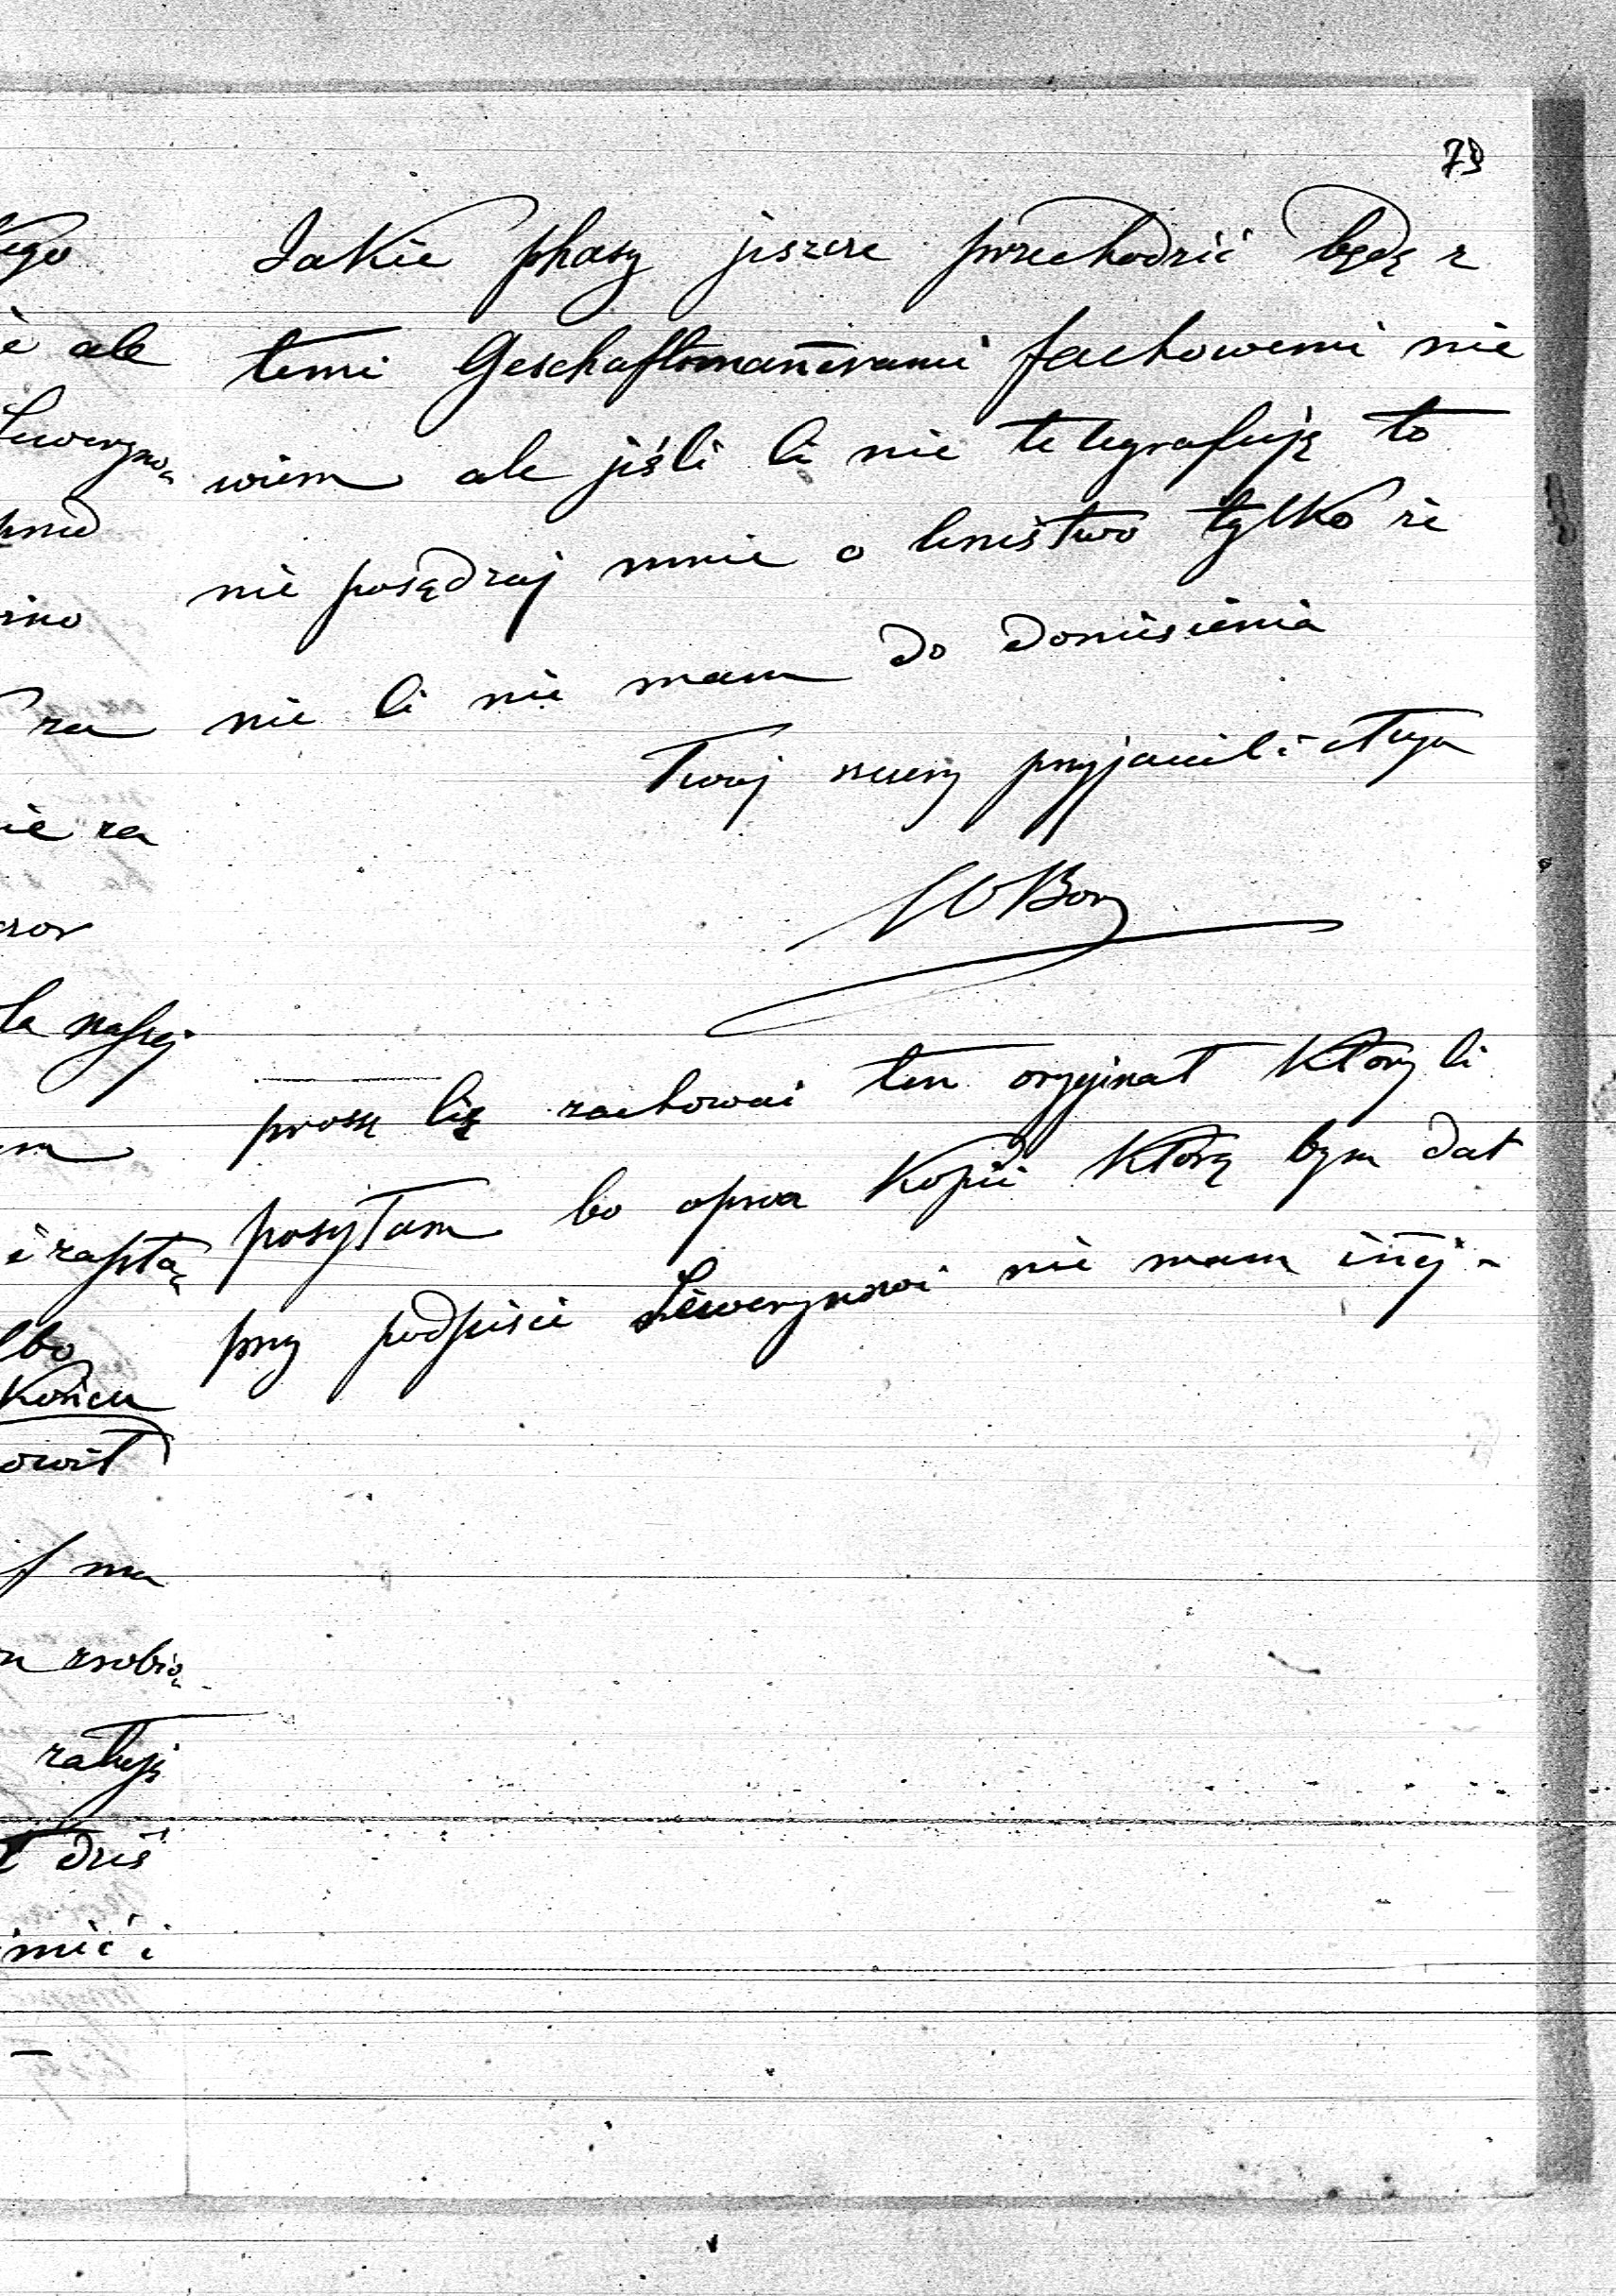 73
Jakie phasy jeszcze przechodzić będę z
temi Geschaftsmanerami fachowemi nie
wiem ale jeśli Ci nie telegrafuję to
nie posądzaj mnie o lenistwo tylko że
nic Ci nie mam do doniesienia
Twoj szczery przyjaciel i sługa
WBor
proszę Cię zachowai ten oryginał ktory Ci
posyłam bo oprocz kopii którą bym dał
przy podpisie Sewerynowi nie mam inej -
ego
ale
Seweryno
za
ie za
naszej
i zapła
lbo
Końcu
ma
zrobią
ratuję
dziś